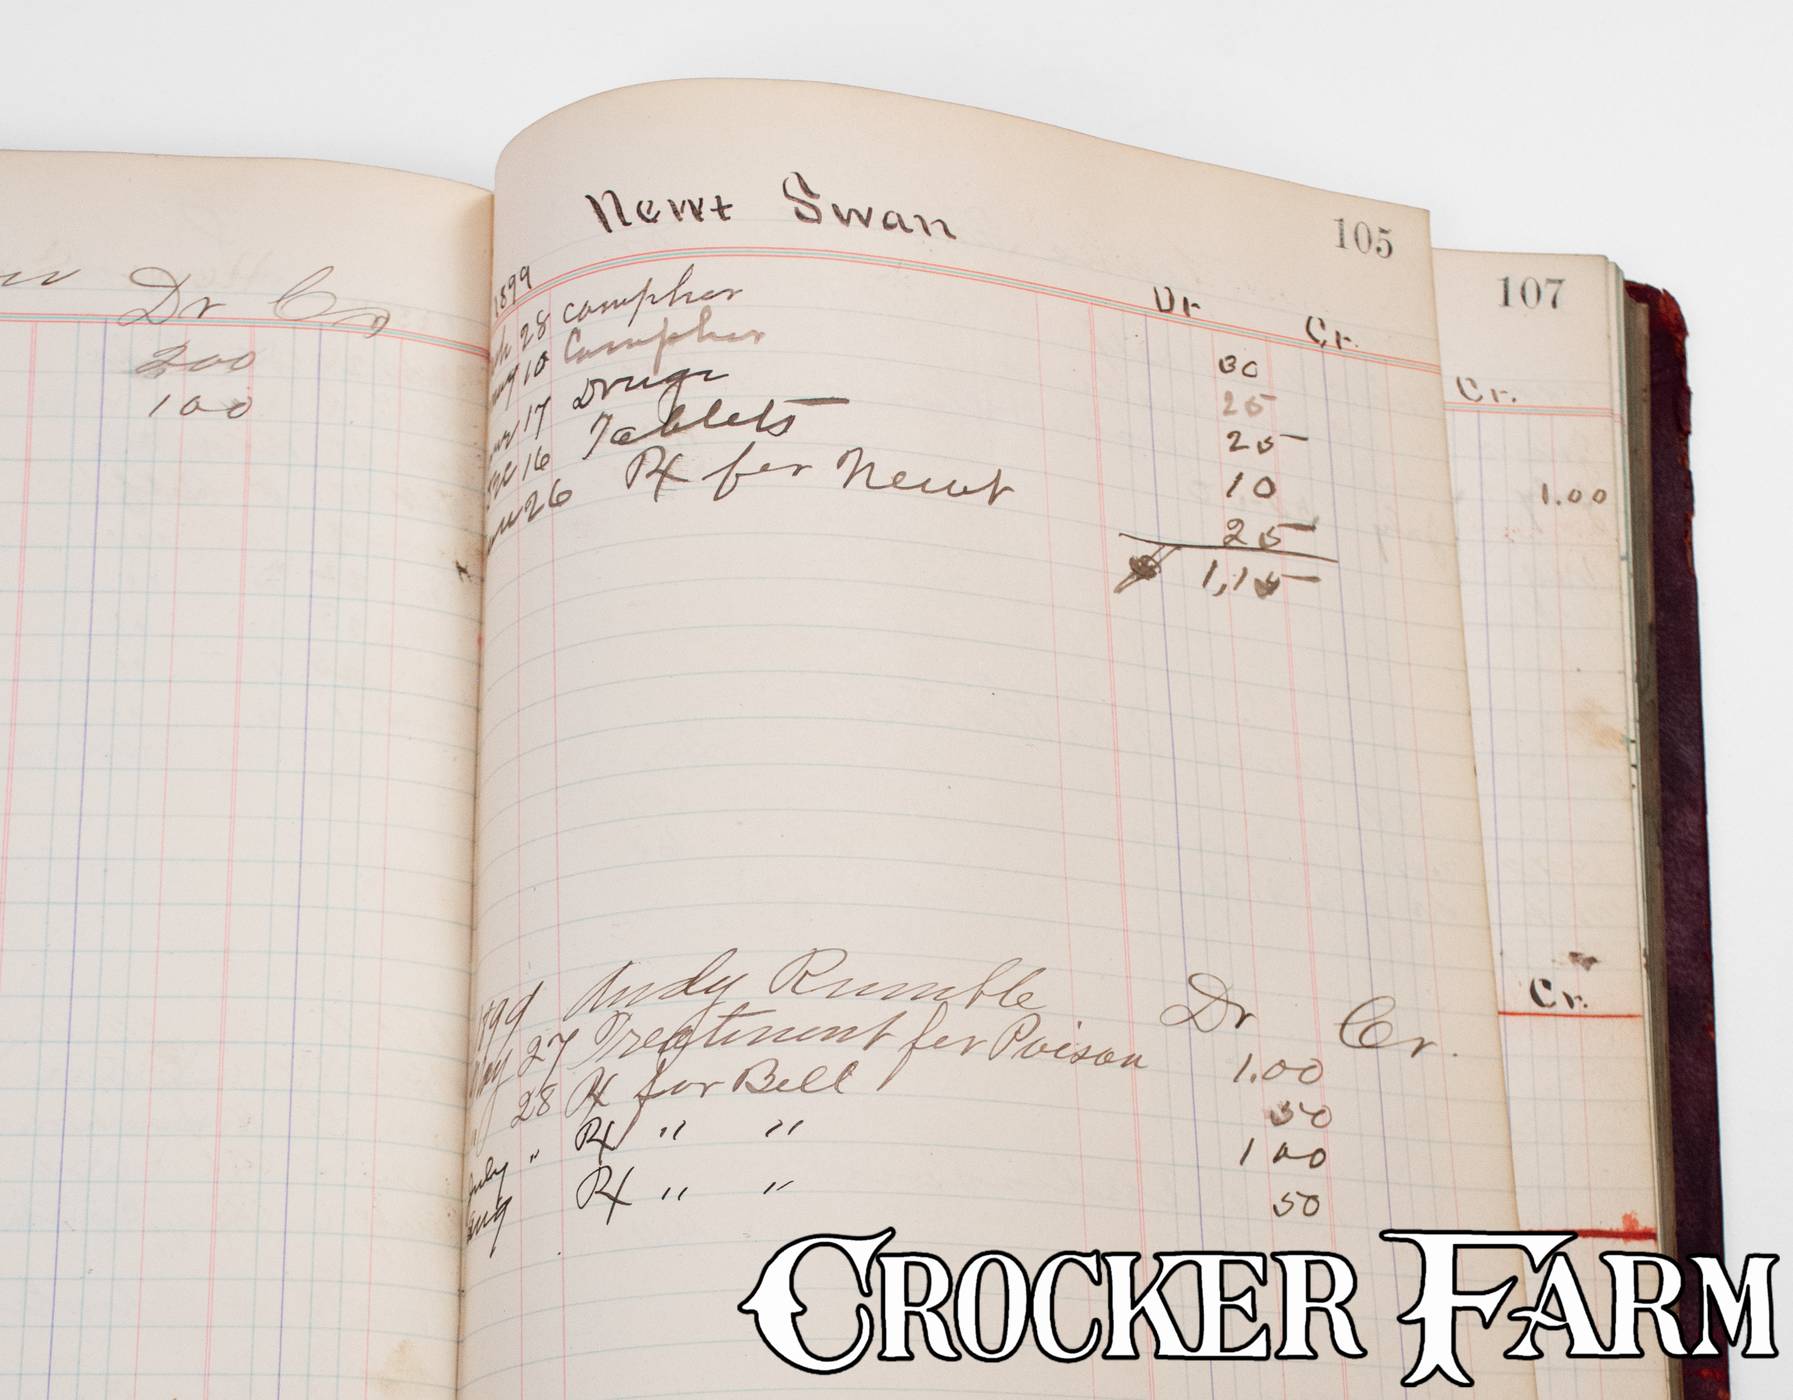 Dr Cr
200
100
Newt Swan
105
1899
Dr Cr.
28 Camphor 30
Aug 10 Camphor 25
17 Drugs 25
16 Tablets 10
26 Rx for Newt 25
$ 1,15
107
Cr.
1.00
Cr.
1899 Andy Rumble Dr Cr.
May 27 Treatment for Poison 1.00
" 28 Rx for Bell 50
July " Rx " " 1 00
Aug Rx " " 50
CROCKER FARM